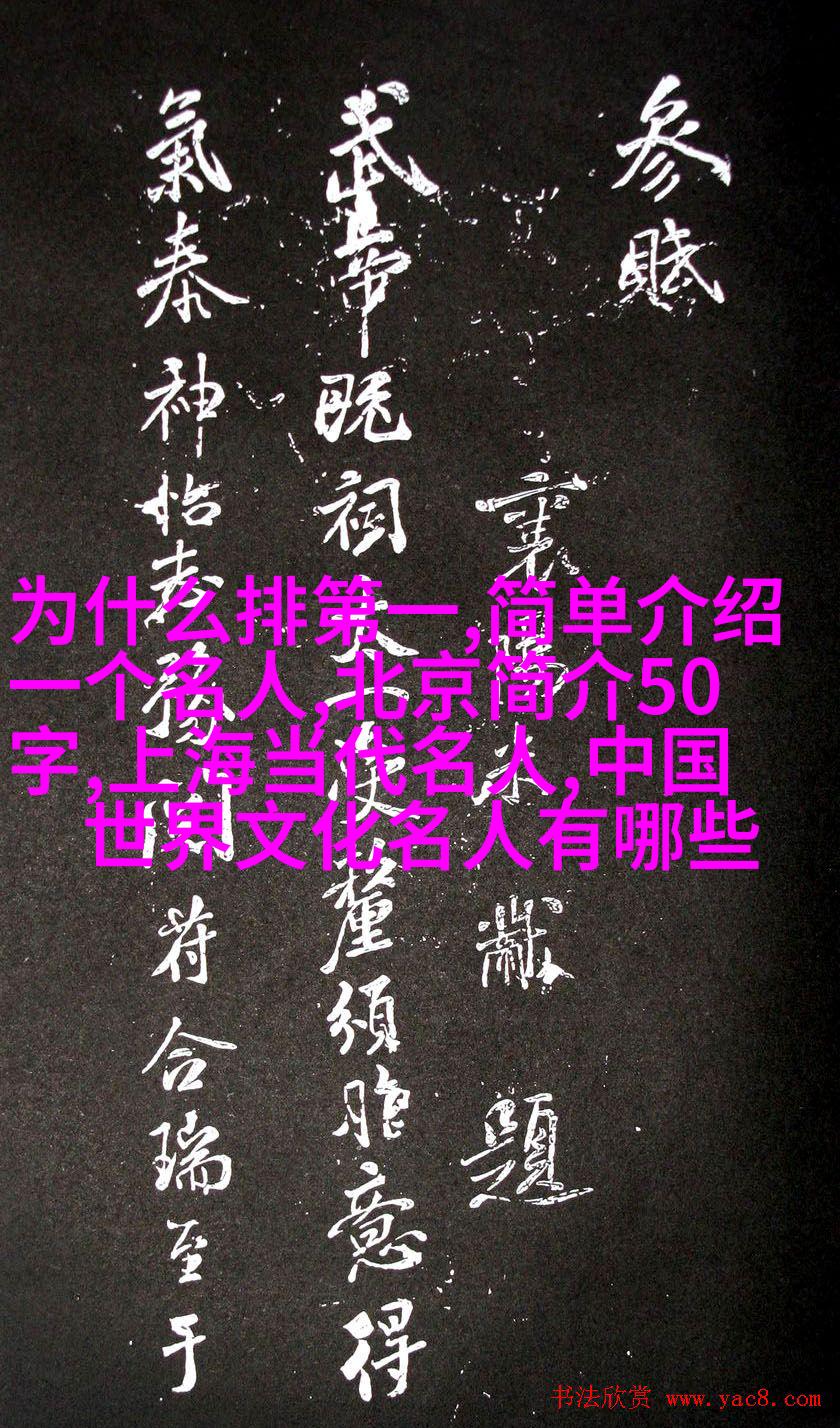 參賦
襄陽米黻題
武帝既祠太一受釐須臾意得
氣泰神怡志豫符合瑞至于
为什么排第一,简单介绍
一个名人,北京简介50
字,上海当代名人,中国
世界文化名人有哪些
书法欣赏 www.yac8.com